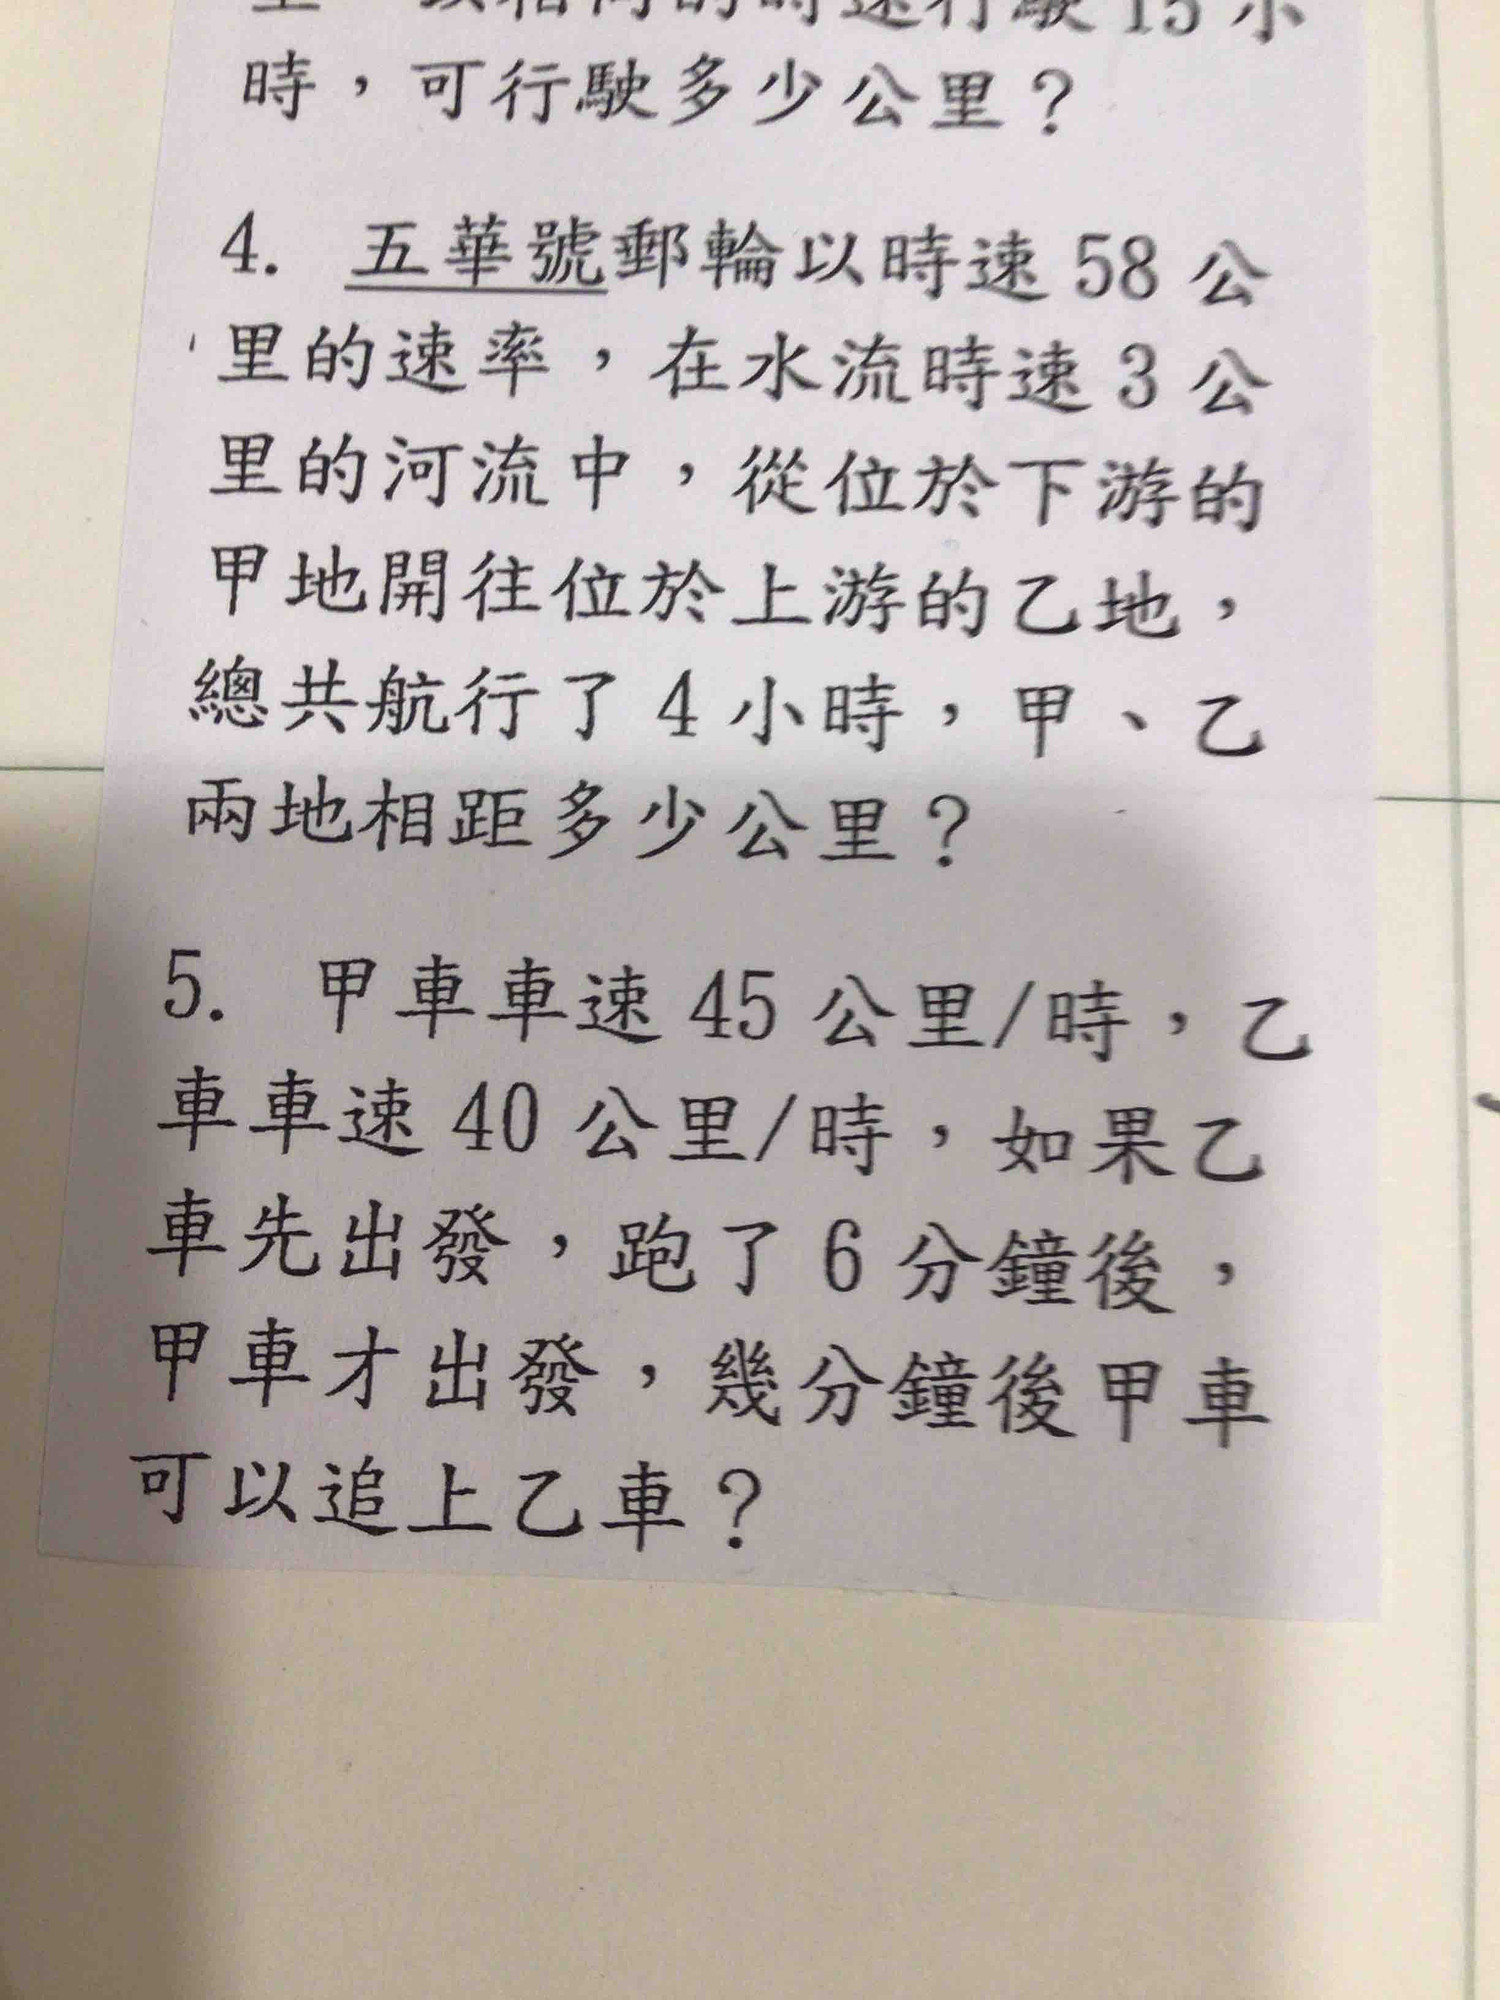 的時速行駛15小
時，可行駛多少公里？
4. 五華號郵輪以時速58公
里的速率，在水流時速3公
里的河流中，從位於下游的
甲地開往位於上游的乙地，
總共航行了4小時，甲、乙
兩地相距多少公里？
5. 甲車車速45公里/時，乙
車車速40公里/時，如果乙
車先出發，跑了6分鐘後，
甲車才出發，幾分鐘後甲車
可以追上乙車？